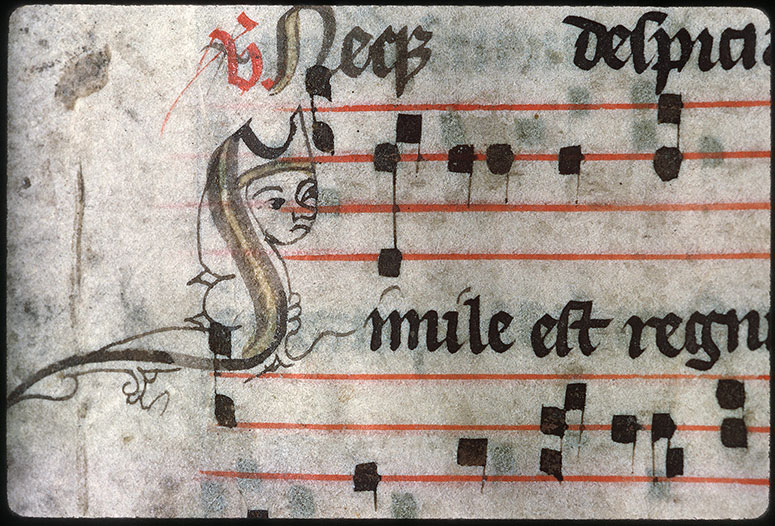 V Necq despicia
Simile est regnu